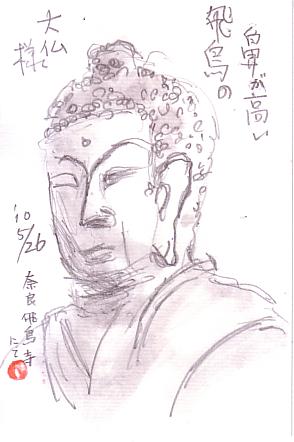 鼻が高い
飛鳥の
大仏
様
'10
5/26
奈良飛鳥寺
にて